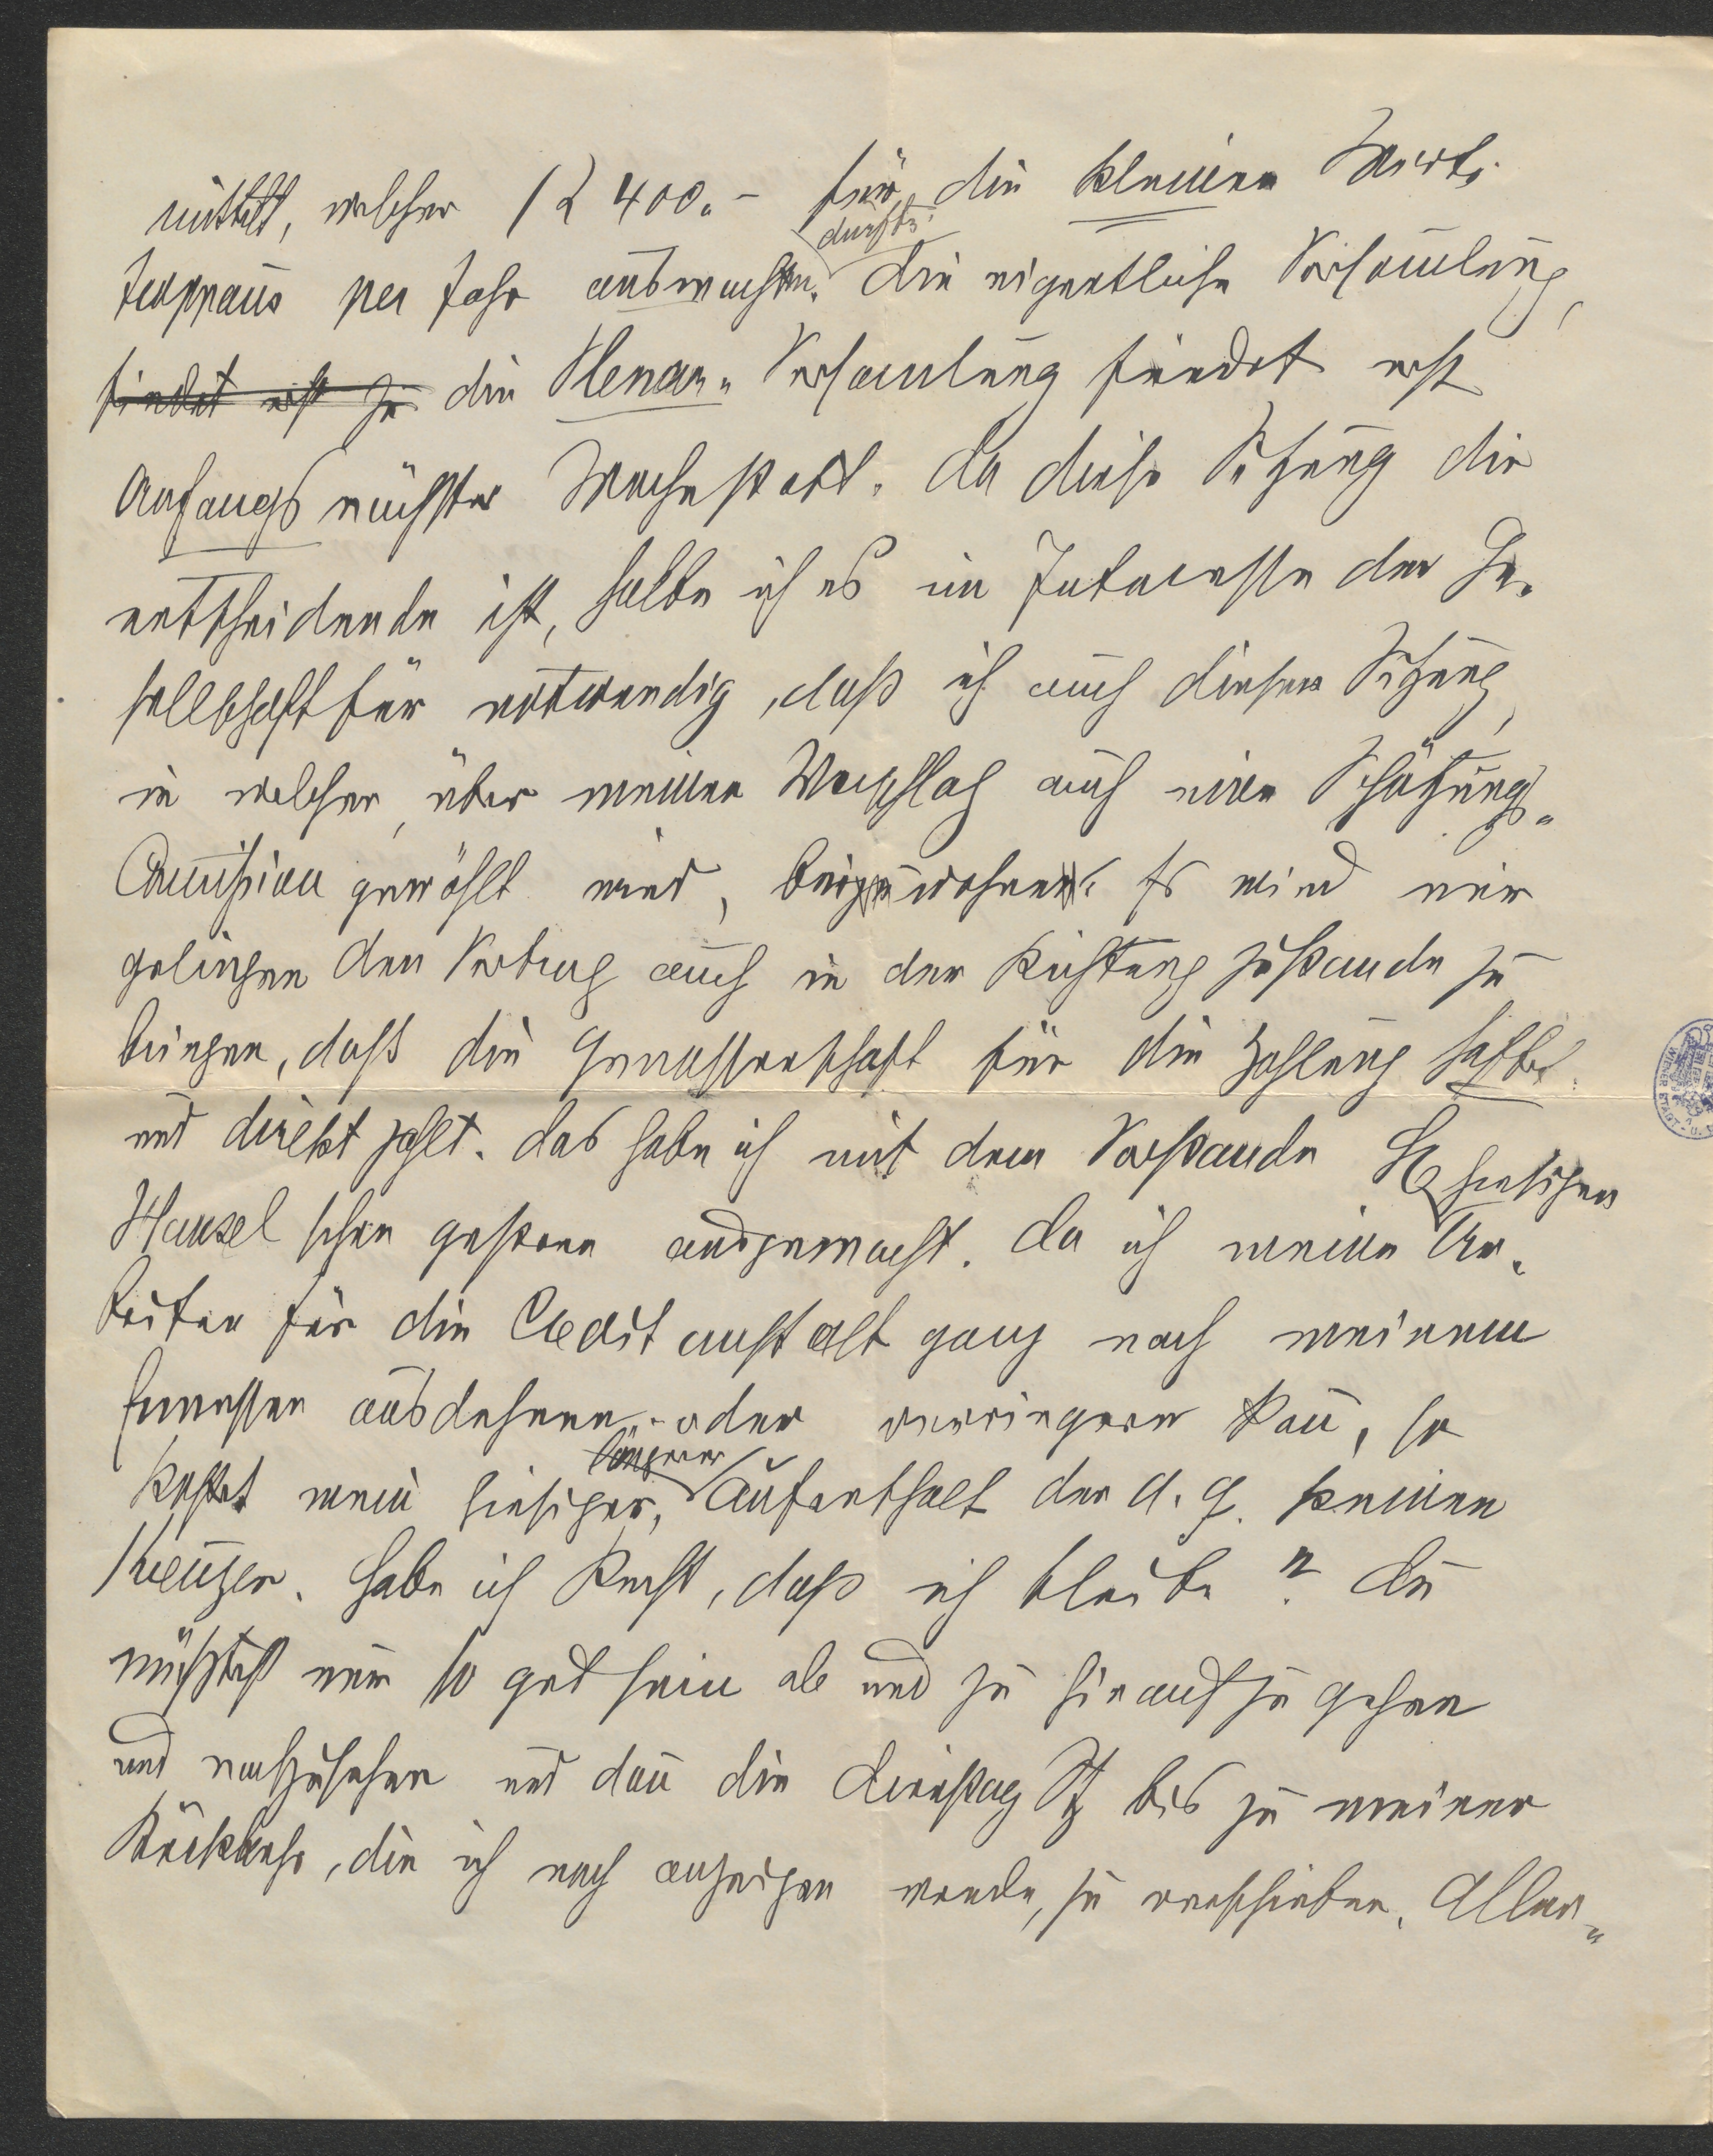 mittelt, welcher K 400.- für die kleinen Wirte
Troppaus per Jahr ausmachen dürfte. Die eigentliche Versam̄lung,
findet erst ja die Plenar-Versam̄lung findet erst
Anfangs nächster Woche statt. Da diese Sitzung die
entscheidende ist, halte ich es im Interesse der Ge-
sellschaft für notwendig, daß ich auch dieser Sitzung,
in welcher, über meinen Vorschlag auch eine Schätzungs-
Com̄ission gewählt wird, beiwohne. Es wird mir
gelingen den Vertrag auch in der Richtung zustande zu
bringen, daß die Genossenschaft für die Zahlung haftet
und direkt zahlt. Das habe ich mit dem Vorstande H
Hansel schon gestern ausgemacht. Da ich meine hiesigen Ar-
beiten für die Creditanstalt ganz nach meinem
Ermessen ausdehnen oder verringern kan̄, so
kostet mein hiesiger, längerer Aufenthalt der d. G. keinen
Kreuzer. Habe ich Recht, daß ich bleibe? Du
müßtest nur so gut sein ab und zu hinauf zu gehen
und nachzusehen und dan̄ die Dienstag Stz bis zu meiner
Rückkehr, die ich noch anzeigen werde, zu verschieben. Aller-